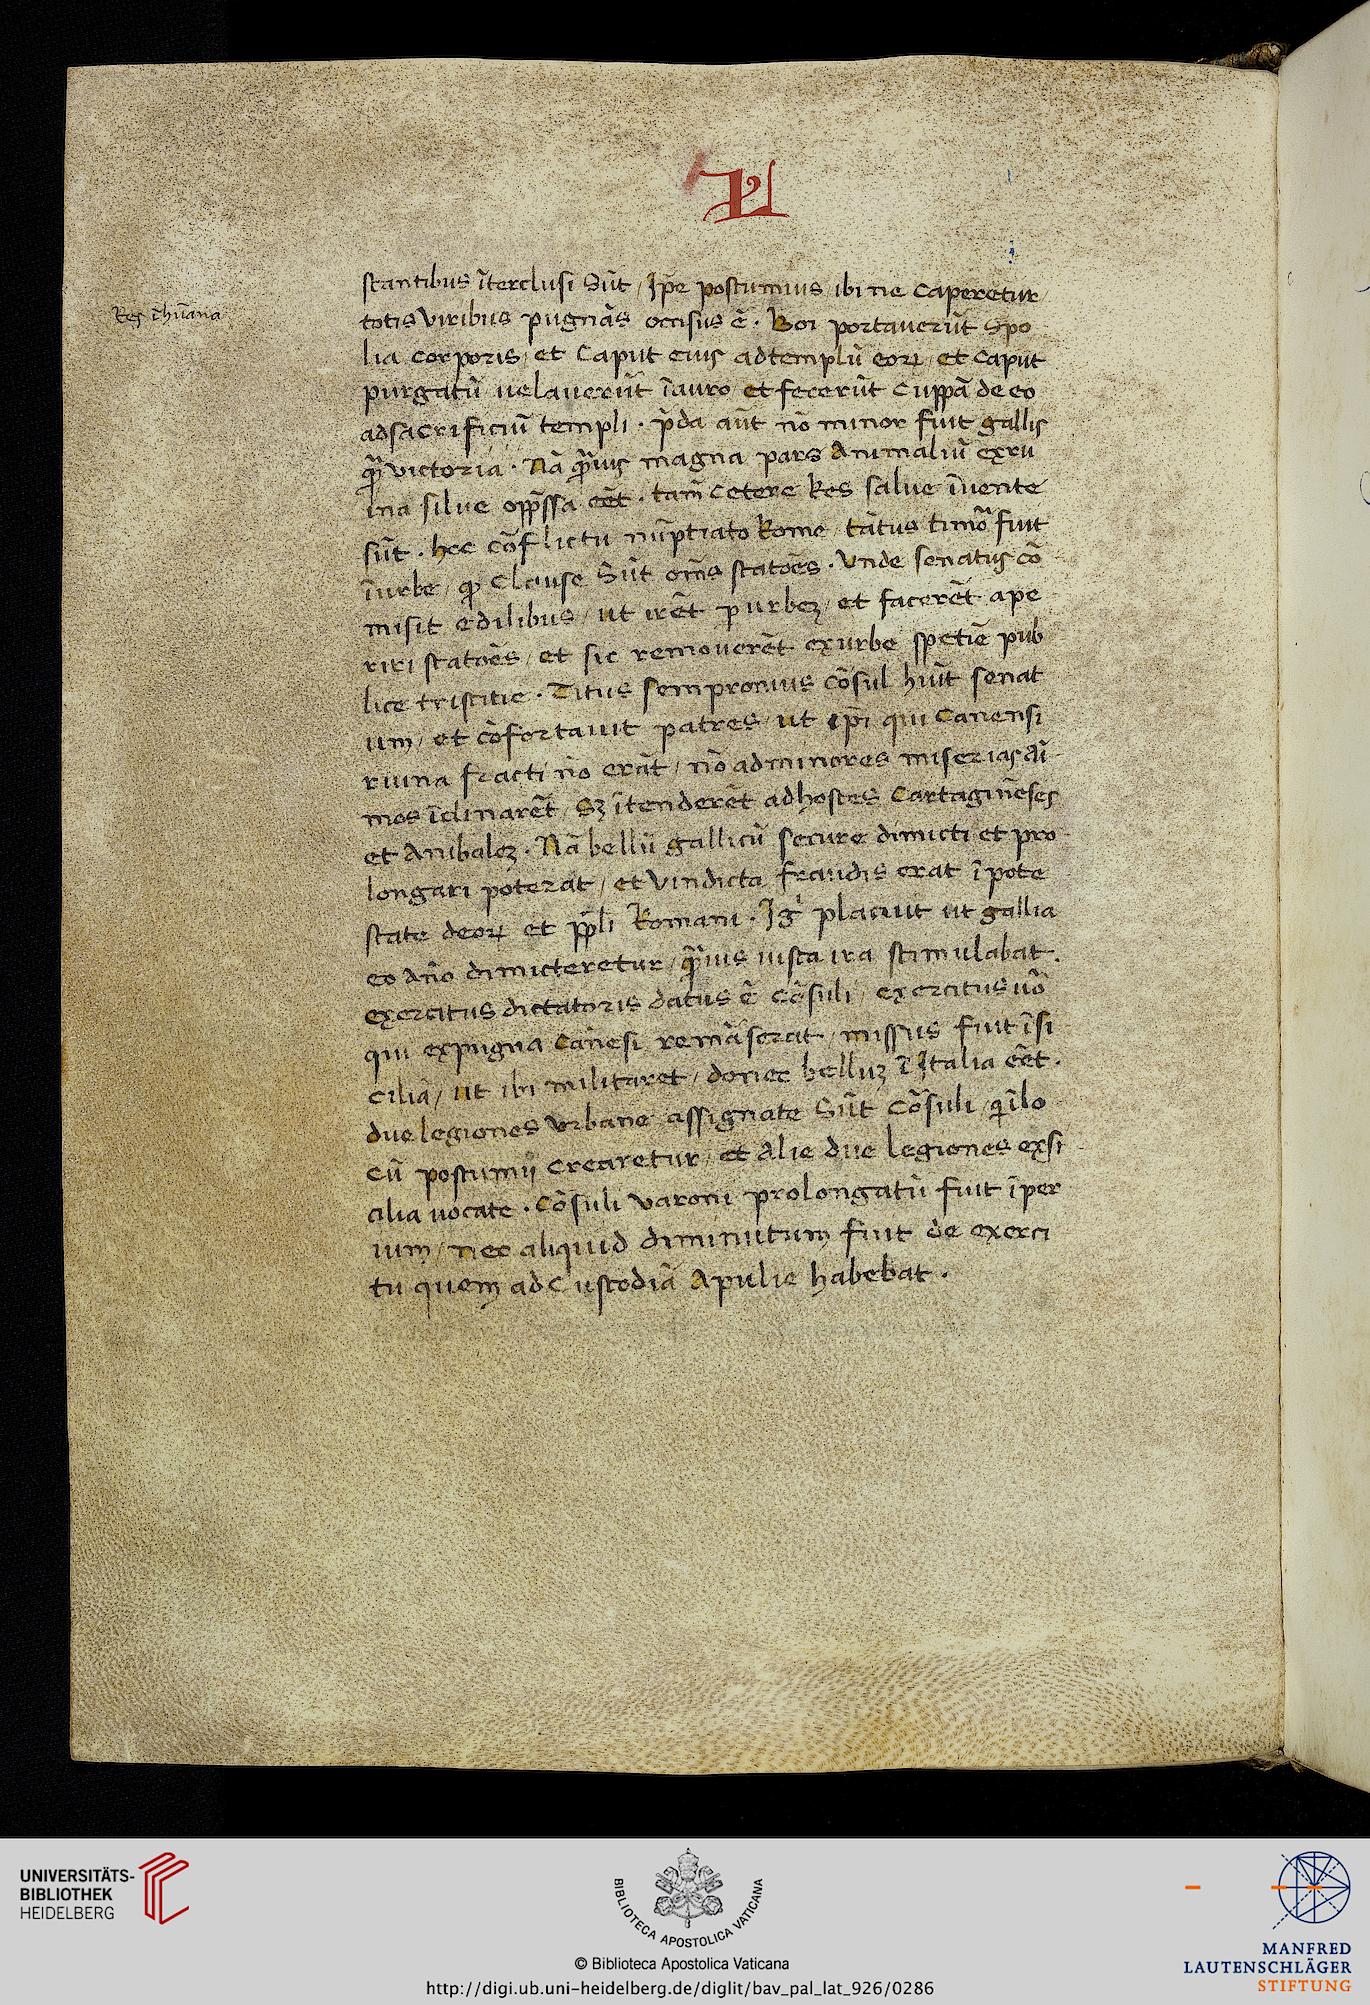 U
stantibus ĩterclusi Sũt / Ip̃e postumius / ibi ne Caperetur /
Res ĩhũana
totis Viribus pugnãs occisus ẽ · Boi portauerũt Spo
lia Corporis / et Caput eius adtemplũ eoꝝ / et Caput
purgatũ uelauerũt ĩauro et fecerũt Cuppã de eo
adsacrificiũ templi · p̃da aũt nõ minor fuit gallis
q̃ victoria · Nã q̃uis magna pars Animaliũ exru
ina silue opp̃ssa eẽt · tam̃ Cetere Res salue ĩuente
sũt · hec cõflictu nũptiato Rome / tãtus timõ fuit
ĩurbe / ꝙ Clause Sũt om̃s statões · Vnde senatus cõ
misit edilibus / ut irẽt ꝑ urbeꝫ / et facerẽt ape
riri statões / et sic remouerẽt exurbe spetiẽ pub
lice tristitie · Titus sempronius Cõsul huit senat
um / et cõfortauit patres / ut ip̃i qui Canensi
ruina fracti nõ erãt / nõ adminores miserias ãi
mos ĩclinarẽt / Sꝫ ĩtenderẽt adhostes Cartaginẽses
et Anibaleꝫ · Nã bellũ gallicũ secure dimicti et pro
longari poterat / et Vindicta fraudis erat ĩ pote
state deoꝝ et pp̃li Romani · Ig̃ placuit ut gallia
eo Añno dimicteretur / q̃uis iusta ira stimulabat ·
exercitus dictatoris datus ẽ Cõsuli / exercitus uõ
qui expugna Cãnesi remãserat / missus fuit ĩsi
ciliã / ut ibi militaret / donec belluꝫ ĩ Italia eẽt ·
due legiones Vrbane assignate Sũt Cõsuli / q̃ ĩlo
cũ postumij Crearetur / et Alie due legiones exsi
cilia uocate · Cõsuli Varoni prolongatũ fuit ĩper
ium / nec aliquid diminutum fuit de exerci
tu quem adCustodiã Apulie habebat ·
UNIVERSITÄTS-
BIBLIOTHEK
HEIDELBERG
BIBLIOTECA APOSTOLICA VATICANA
© Biblioteca Apostolica Vaticana
http://digi.ub.uni-heidelberg.de/diglit/bav_pal_lat_926/0286
MANFRED
LAUTENSCHLÄGER
STIFTUNG